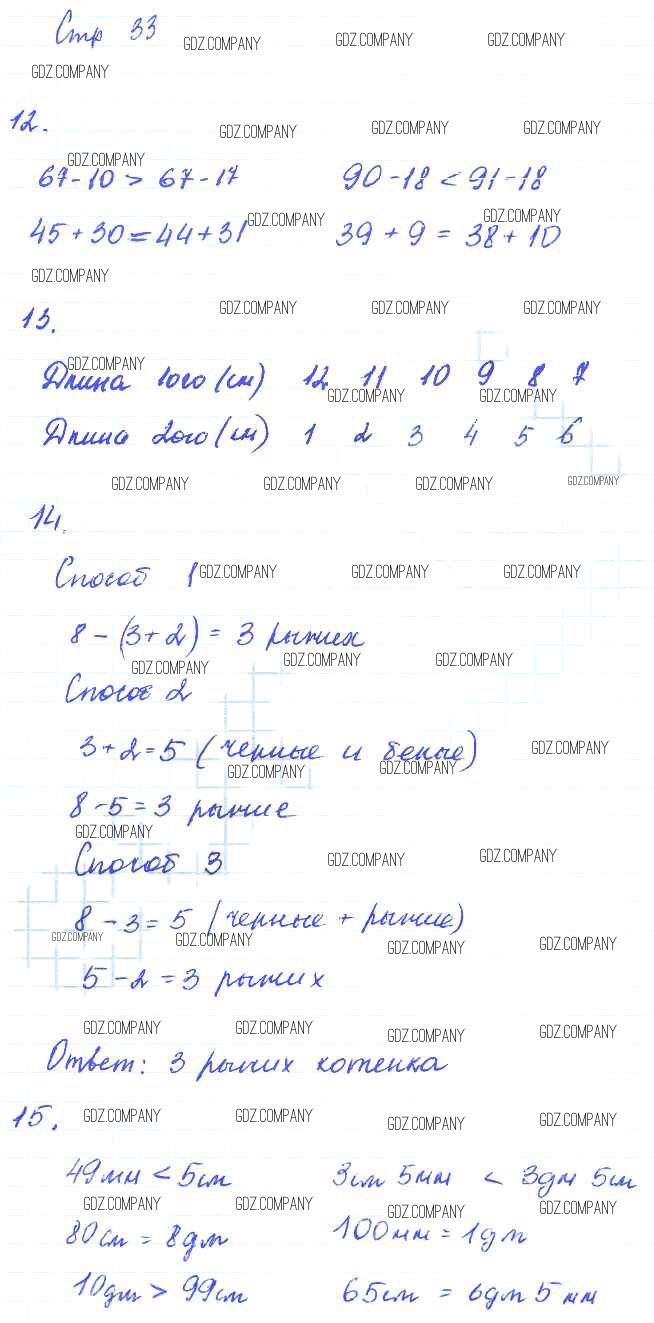 Стр 33
12.
67-10 > 67-17 90-18 < 91-18
45+30=44+31 39+9 = 38+10
13.
Длина 1ого (см) 12 11 10 9 8 7
Длина 2ого (см) 1 2 3 4 5 6
14.
Способ 1
8 - (3+2) = 3 рыжих
Способ 2
3+2=5 (черные и белые)
8-5=3 рыжие
Способ 3
8-3=5 (черные + рыжие)
5-2=3 рыжих
Ответ: 3 рыжих котенка
15.
49мм < 5см 3см 5мм < 3дм 5см
80см = 8дм 100мм = 1дм
10дм > 99см 65см = 6дм 5мм
GDZ.COMPANY